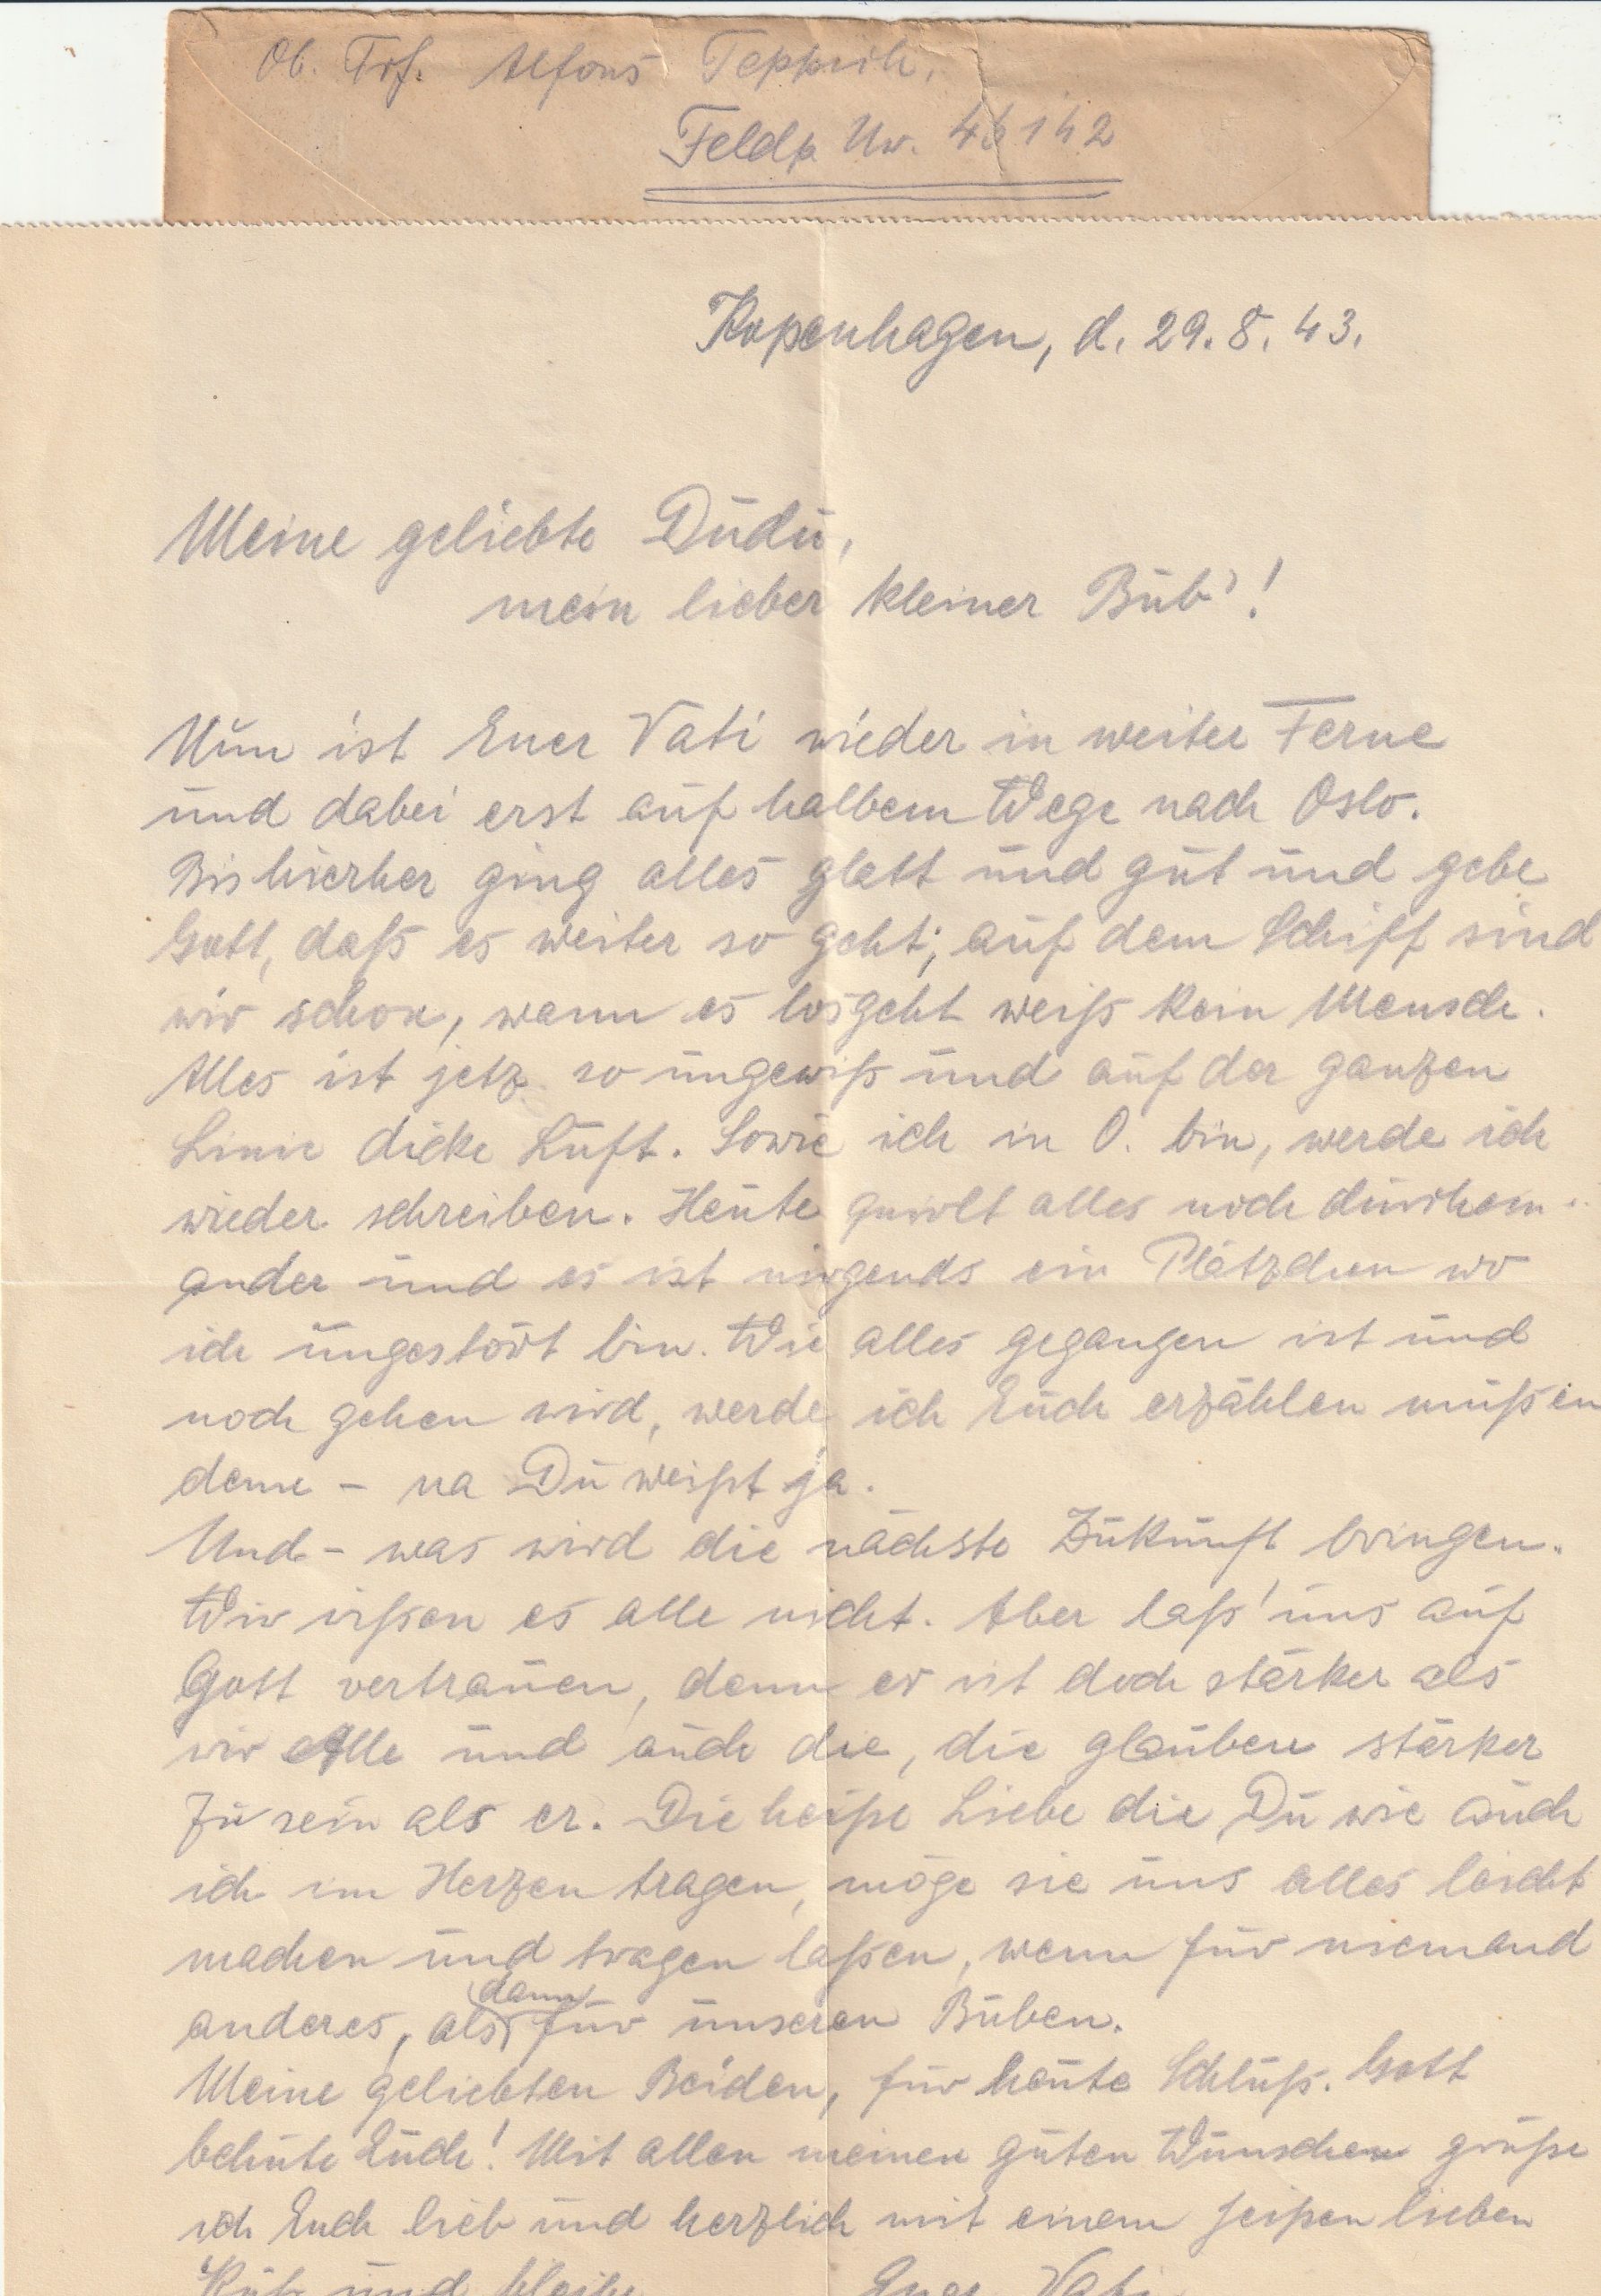 Ob. Trf. Alfons Tepprich,
Feldp. Nr. 46142
Kopenhagen, d. 29.8.43.
Meine geliebte Dudu,
mein lieber kleiner Bub'!
Nun ist Euer Vati wieder in weiter Ferne
und dabei erst auf halbem Wege nach Oslo.
Bis hierher ging alles glatt und gut und gebe
Gott, daß es weiter so geht; auf dem Schiff sind
wir schon, wann es losgeht weiß kein Mensch.
Alles ist jetz so ungewiß und auf der ganzen
Linie dicke Luft. Sowie ich in O. bin, werde ich
wieder schreiben. Heute quirlt alles noch durchein-
ander und es ist nirgends ein Plätzchen wo
ich ungestört bin. Wie alles gegangen ist und
noch gehen wird, werde ich Euch erzählen müßen
denn - na Du weißt ja.
Und - was wird die nächste Zukunft bringen.
Wir wißen es alle nicht. Aber laß' uns auf
Gott vertrauen, denn er ist doch stärker als
wir Alle und auch die, die glauben stärker
zu sein als er. Die heiße Liebe die Du wie auch
ich im Herzen tragen, möge sie uns alles leicht
machen und tragen laßen, wenn für niemand
anderes, als dann für unseren Buben.
Meine geliebten Beiden, für heute Schluß. Gott
behüte Euch! Mit allen meinen guten Wünschen grüße
ich Euch lieb und herzlich mit einem heißen lieben
Kuß und bleibe Euer Vati